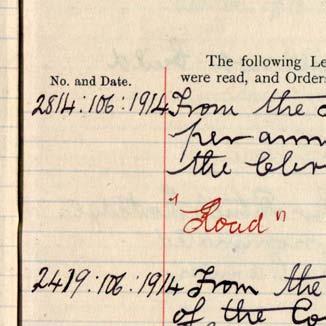 The following Le
No. and Date.
were read, and Orders
2814:106:1914 From the
per ann
the Cler
"Load"
2419:106:1914 From the
of the Co